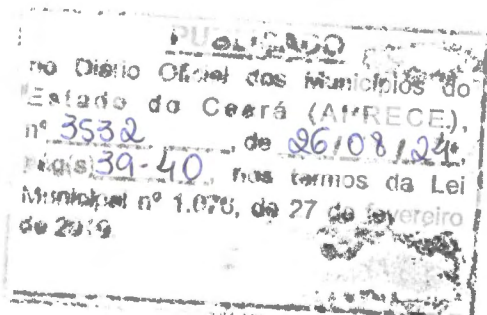 PUBLICADO
no Diário Oficial dos Municípios do
Estado do Ceará (APRECE),
nº 3532, de 26/08/24,
pág(s) 39-40, nos termos da Lei
Municipal nº 1.076, de 27 de fevereiro
de